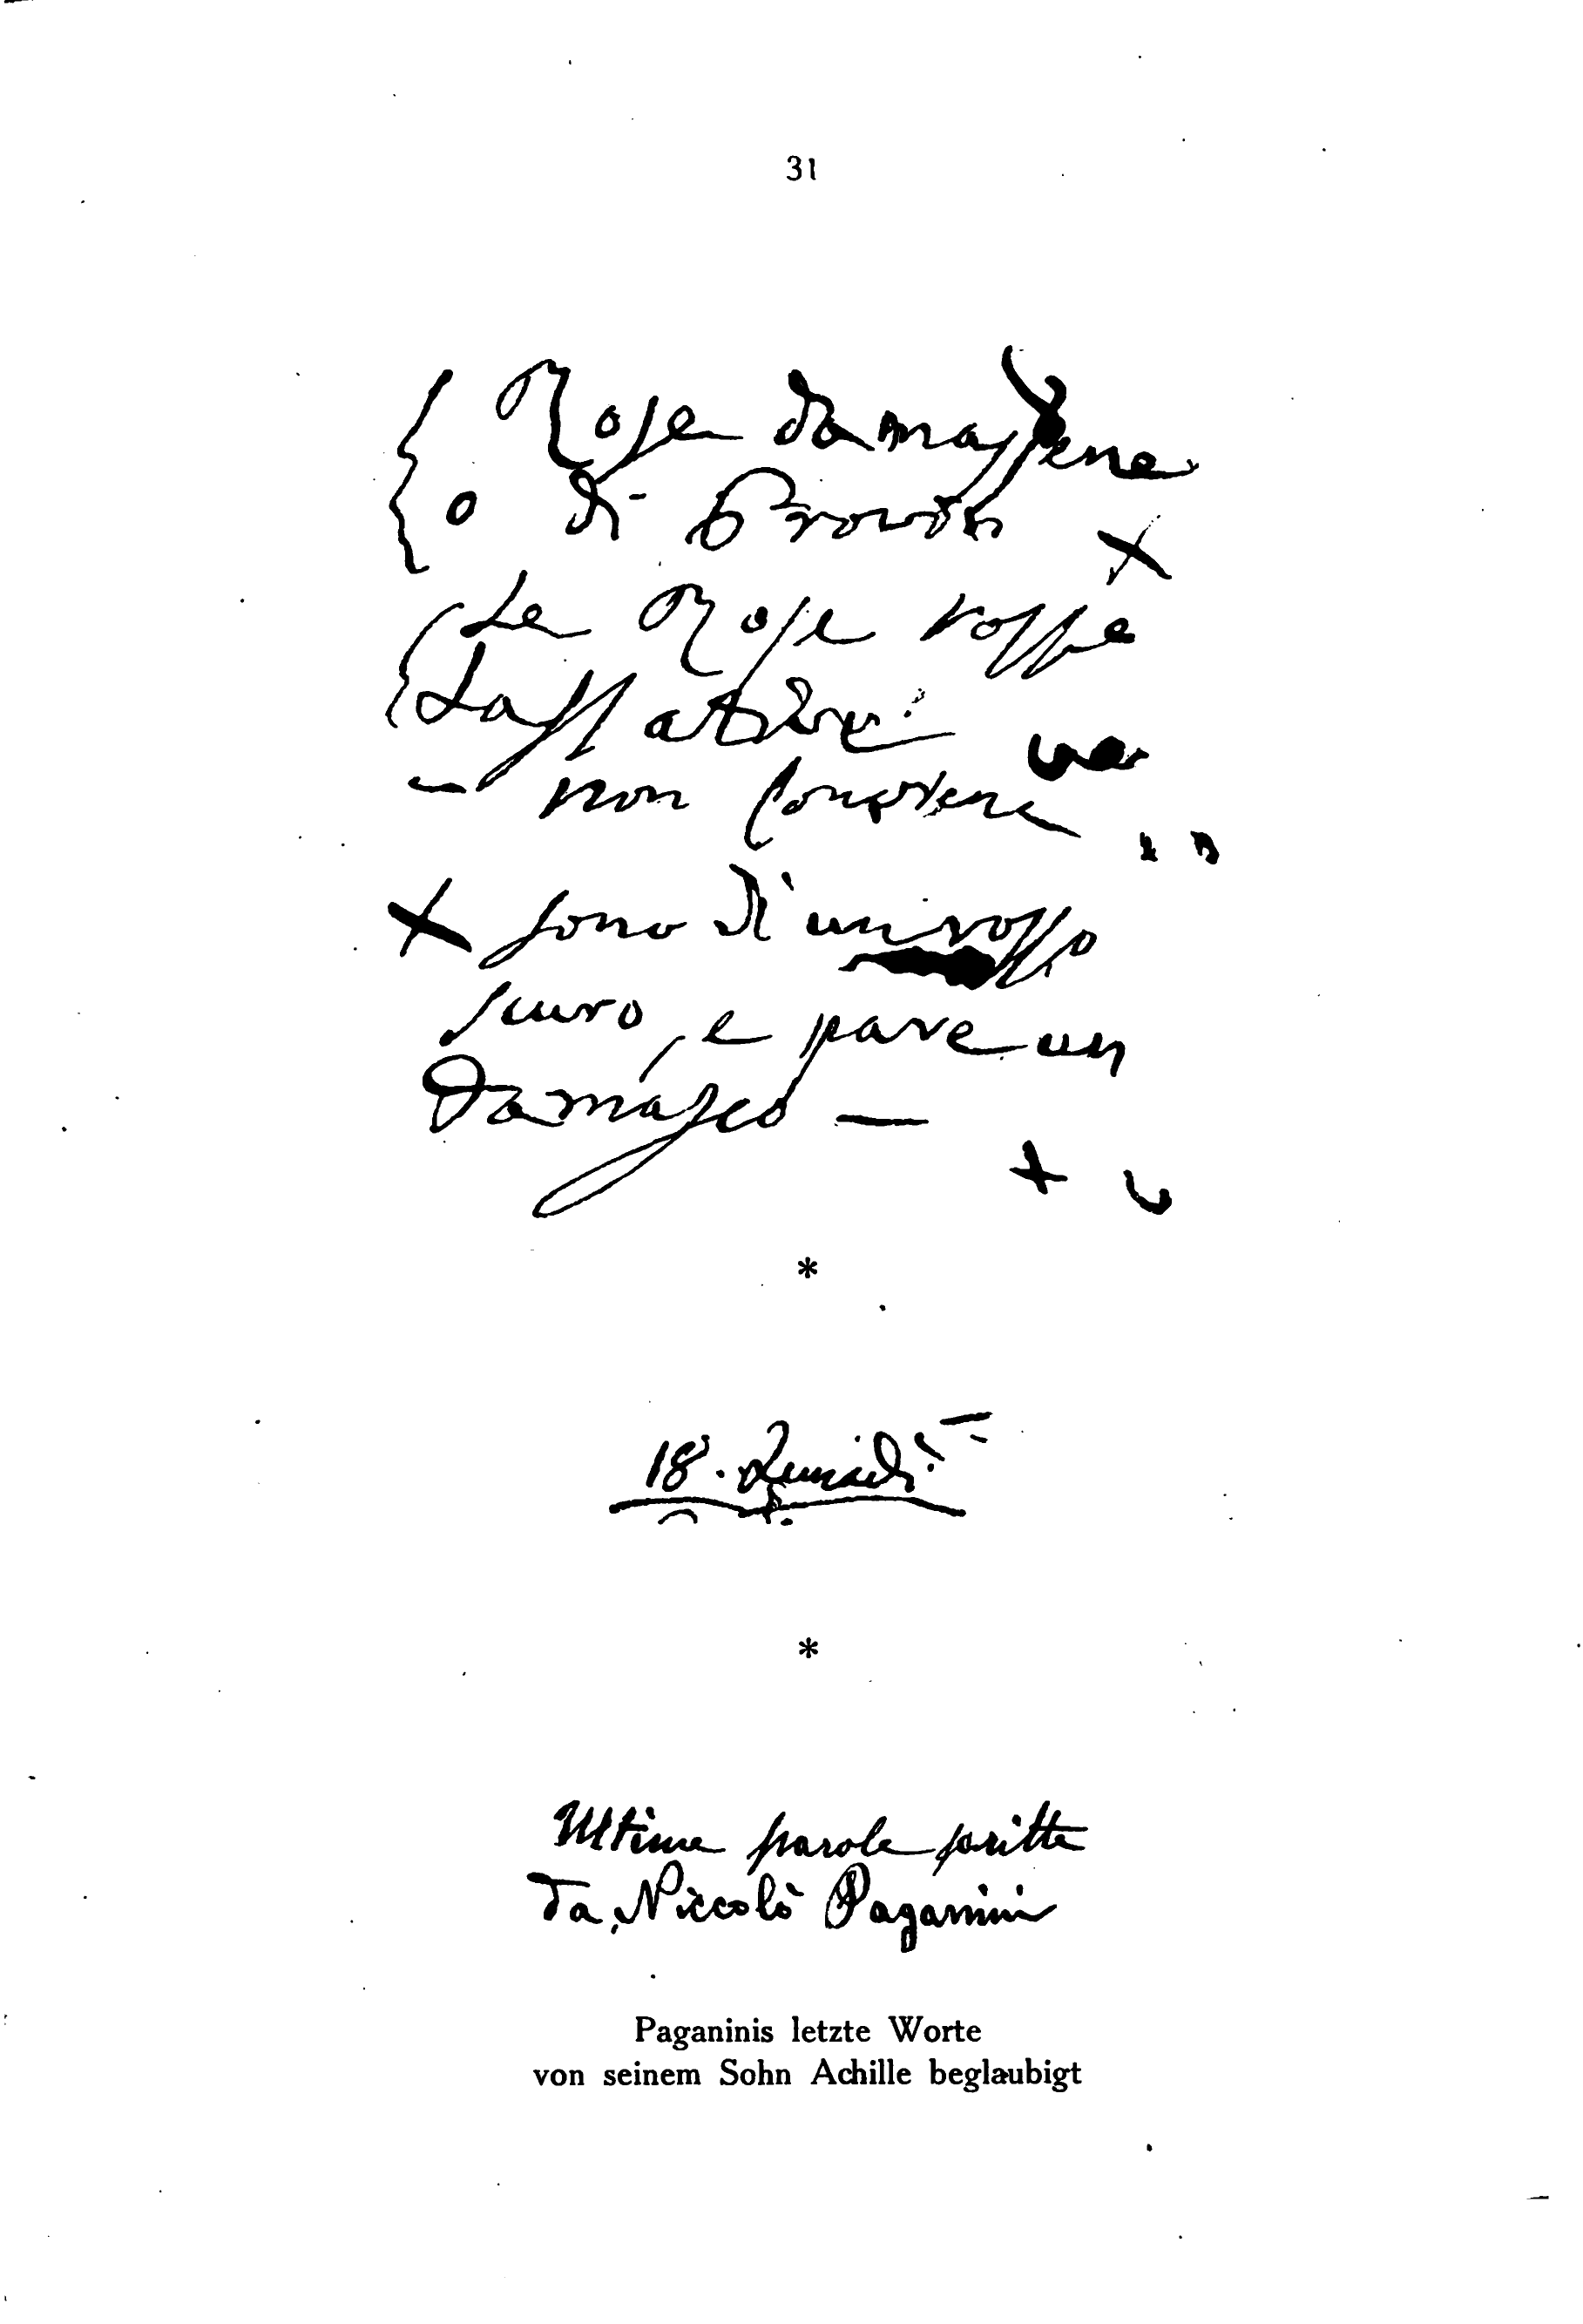 31
Rose damascene
o di Provin
Le Rose rosse
Lassative
non
+ sono d'un rosso
scuro, e pare un
Damasco —
+
*
18. Lunedì
*
Ultime parole scritte
da Niccolò Paganini
Paganinis letzte Worte
von seinem Sohn Achille beglaubigt